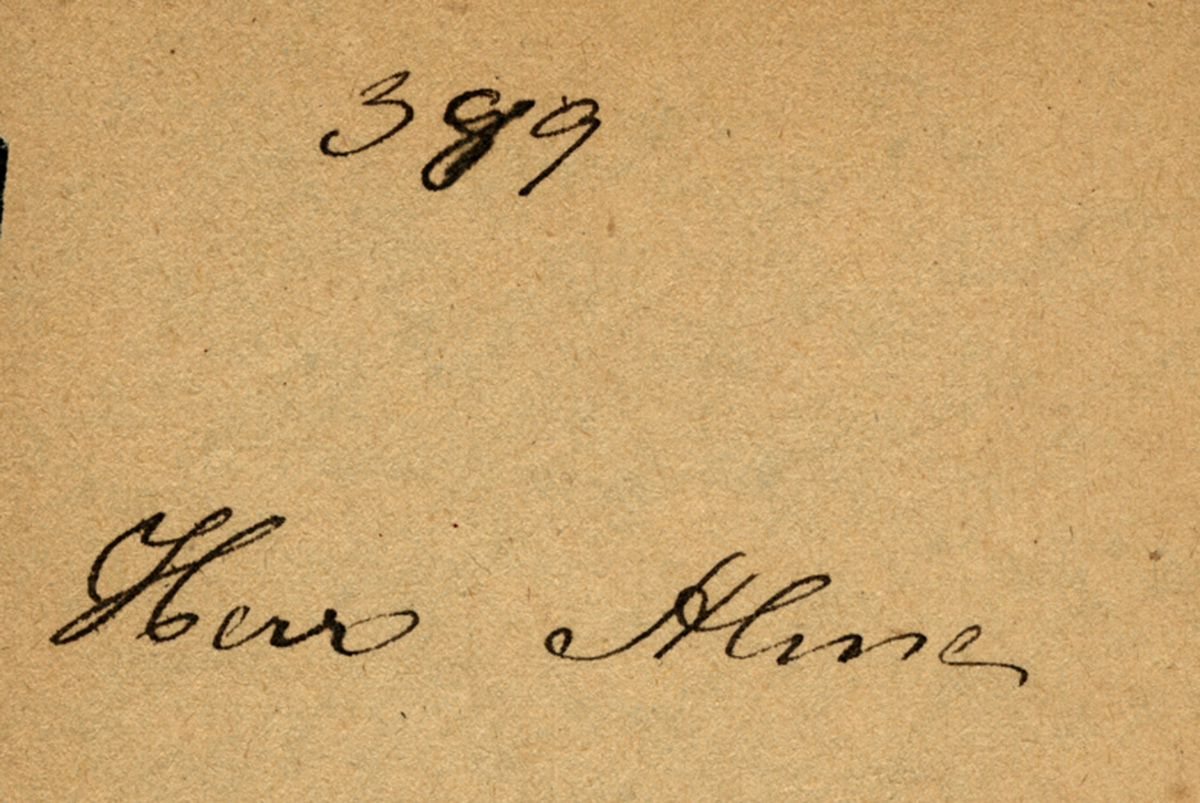 389
Herr Aline